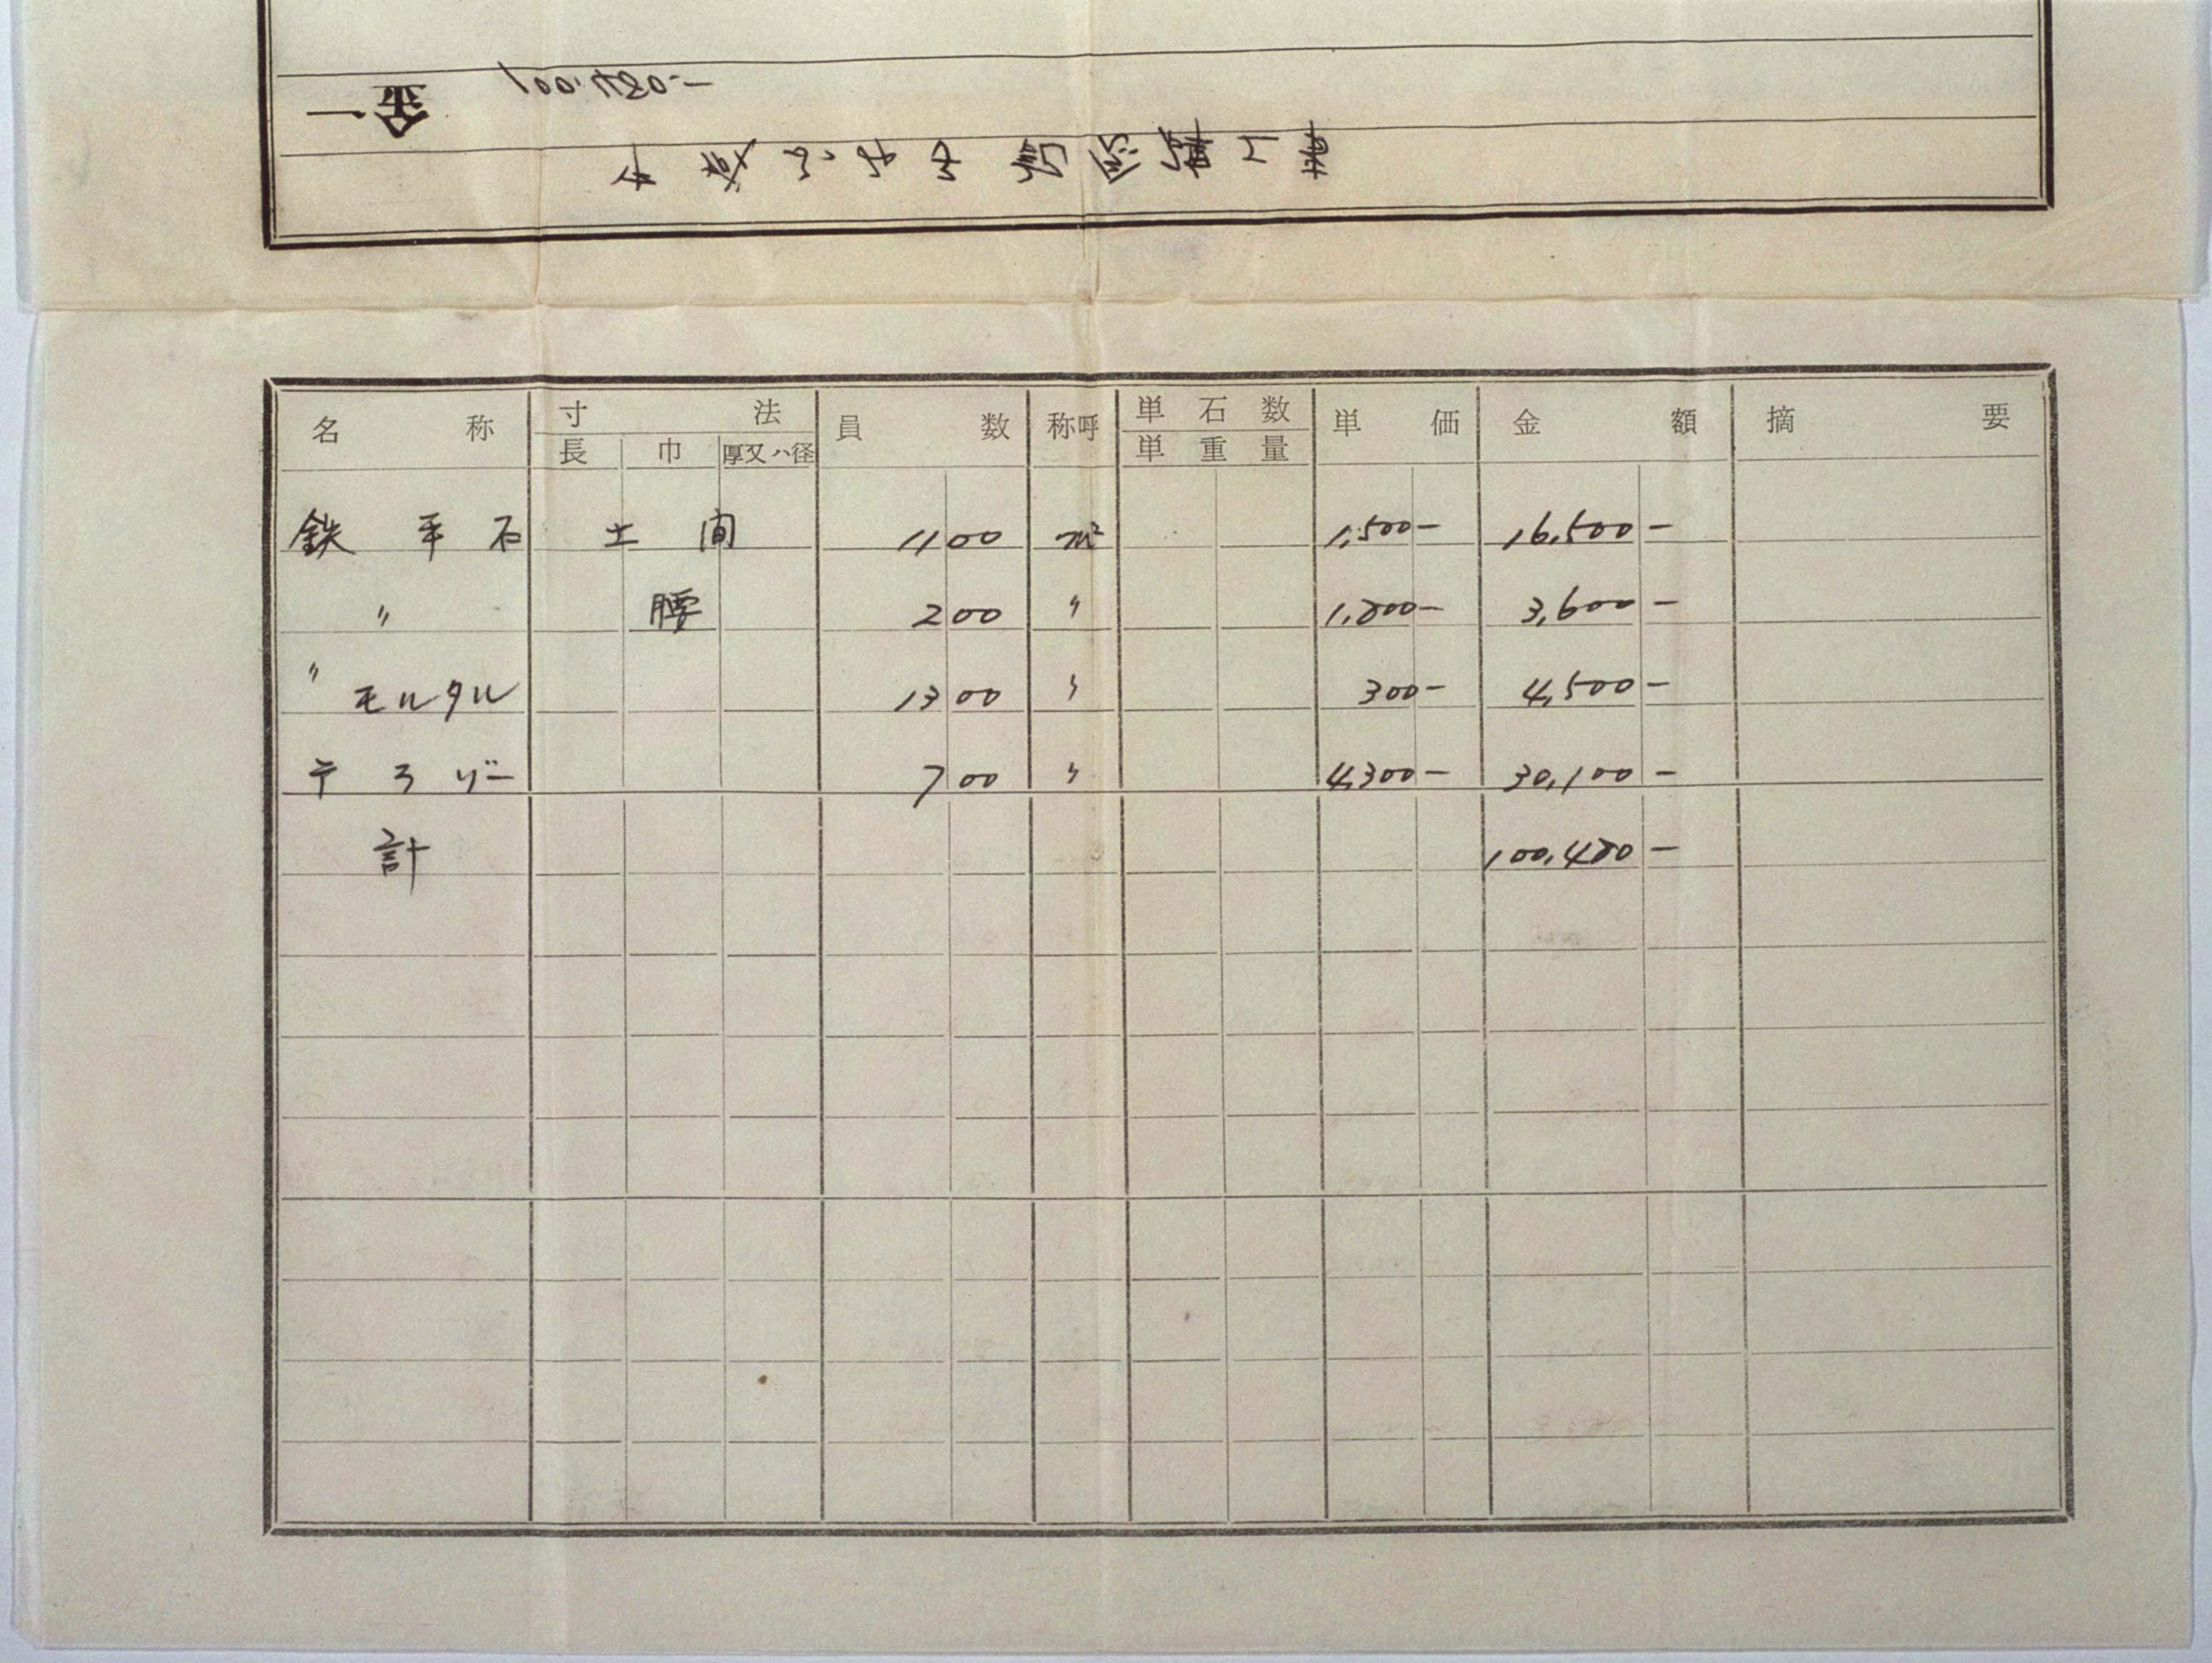 金一 100,480-
工事
名称 寸法 員数 称呼 単石数 単価 金額 摘要
長 巾 厚又ハ径 単重量
鉄平石 土間 11 00 m² 1,500- 16,500-
〃 腰 2 00 〃 1,800- 3,600-
〃 モルタル 13 00 〃 300- 4,500-
テラゾー 7 00 〃 4,300- 30,100-
計 100,480-